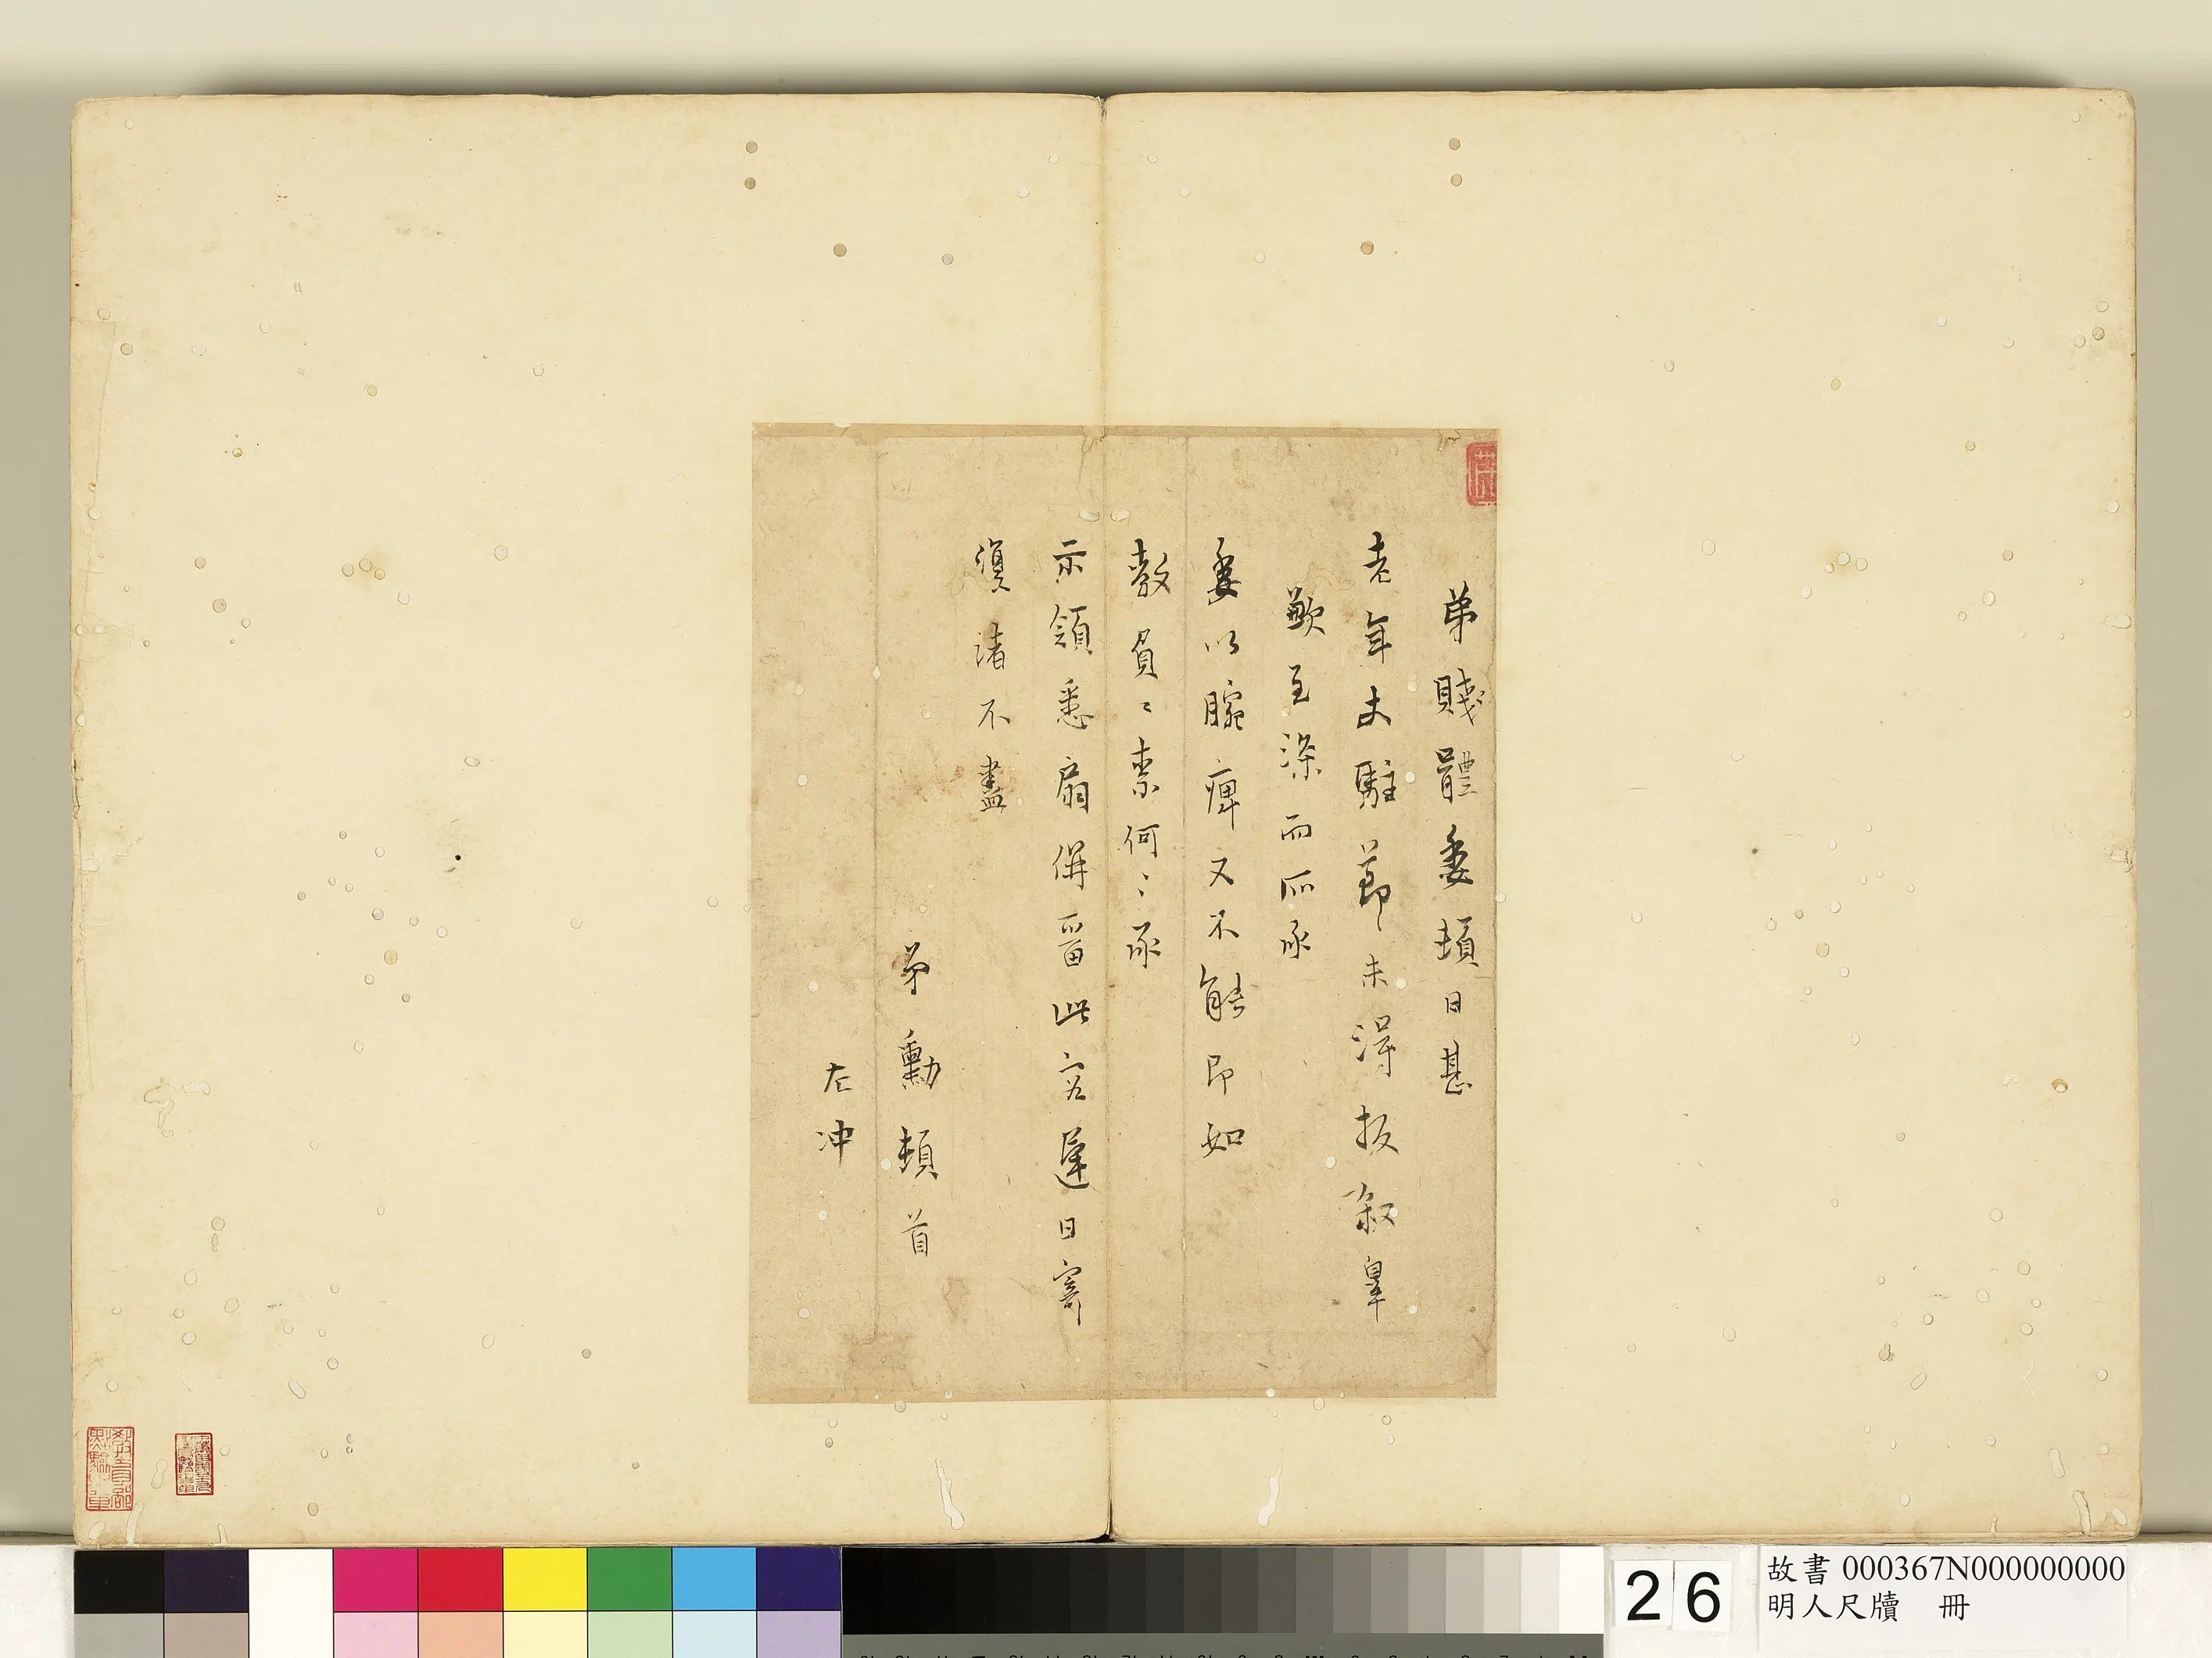 弟賤體委頓日甚
老年丈駐節未得扳敘辠
歉至深而所承
委以腕痺又不能即如
教負〻柰何〻承
示領悉扇俱留此容遲日寄
須諸不盡
弟勳頓首
左沖
26
故書 000367N000000000
明人尺牘 冊